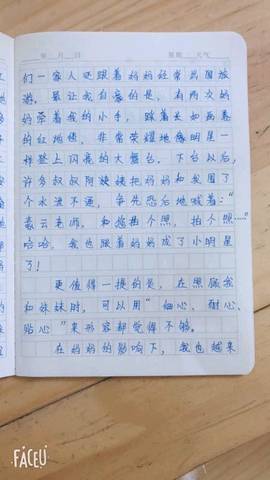 年 月 日 星期 天气
们一家人还跟着妈妈经常出国旅
游。最让我自豪的是,有两次妈
妈牵着我的小手,踩着长如画卷
的红地毯,非常荣耀地像明星一
样登上闪亮的大舞台。下台以后,
许多叔叔阿姨把妈妈和我围了
个水泄不通,争先恐后地喊着:“
豪云老师,和您拍个照,拍个照……”
哈哈,我也跟着妈妈成了小明星
了!
更值得一提的是,在照顾我
和妹妹时,可以用“细心、耐心、
贴心”来形容都觉得不够。
在妈妈的影响下,我也越来
FACEU